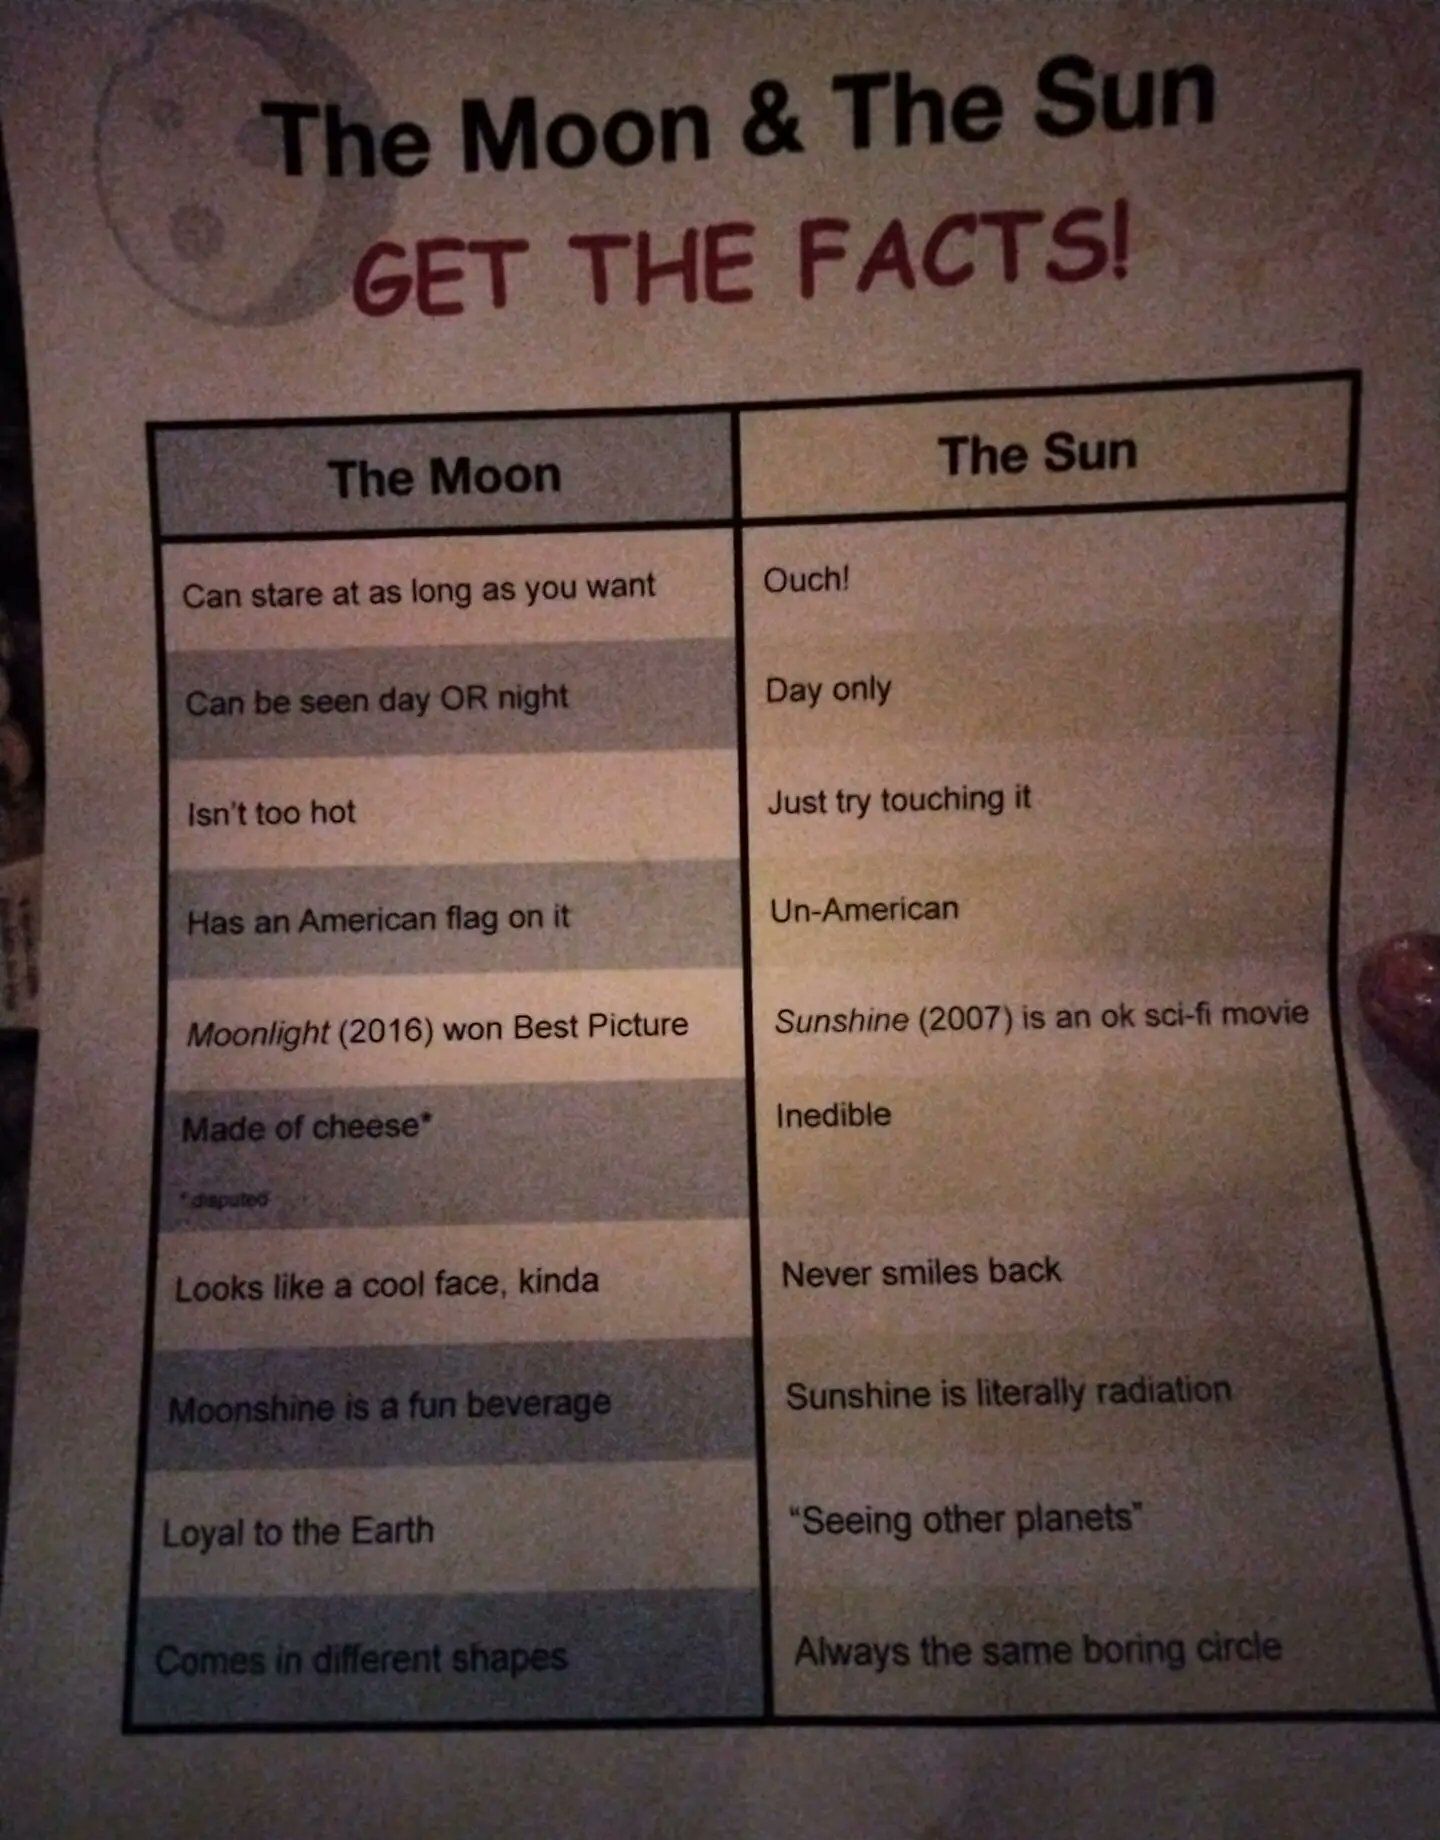 The Moon & The Sun
GET THE FACTS!
The Moon
The Sun
Can stare at as long as you want
Ouch!
Can be seen day OR night
Day only
Isn't too hot
Just try touching it
Has an American flag on it
Un-American
Moonlight (2016) won Best Picture
Sunshine (2007) is an ok sci-fi movie
Made of cheese*
* disputed
Inedible
Looks like a cool face, kinda
Never smiles back
Moonshine is a fun beverage
Sunshine is literally radiation
Loyal to the Earth
“Seeing other planets”
Comes in different shapes
Always the same boring circle